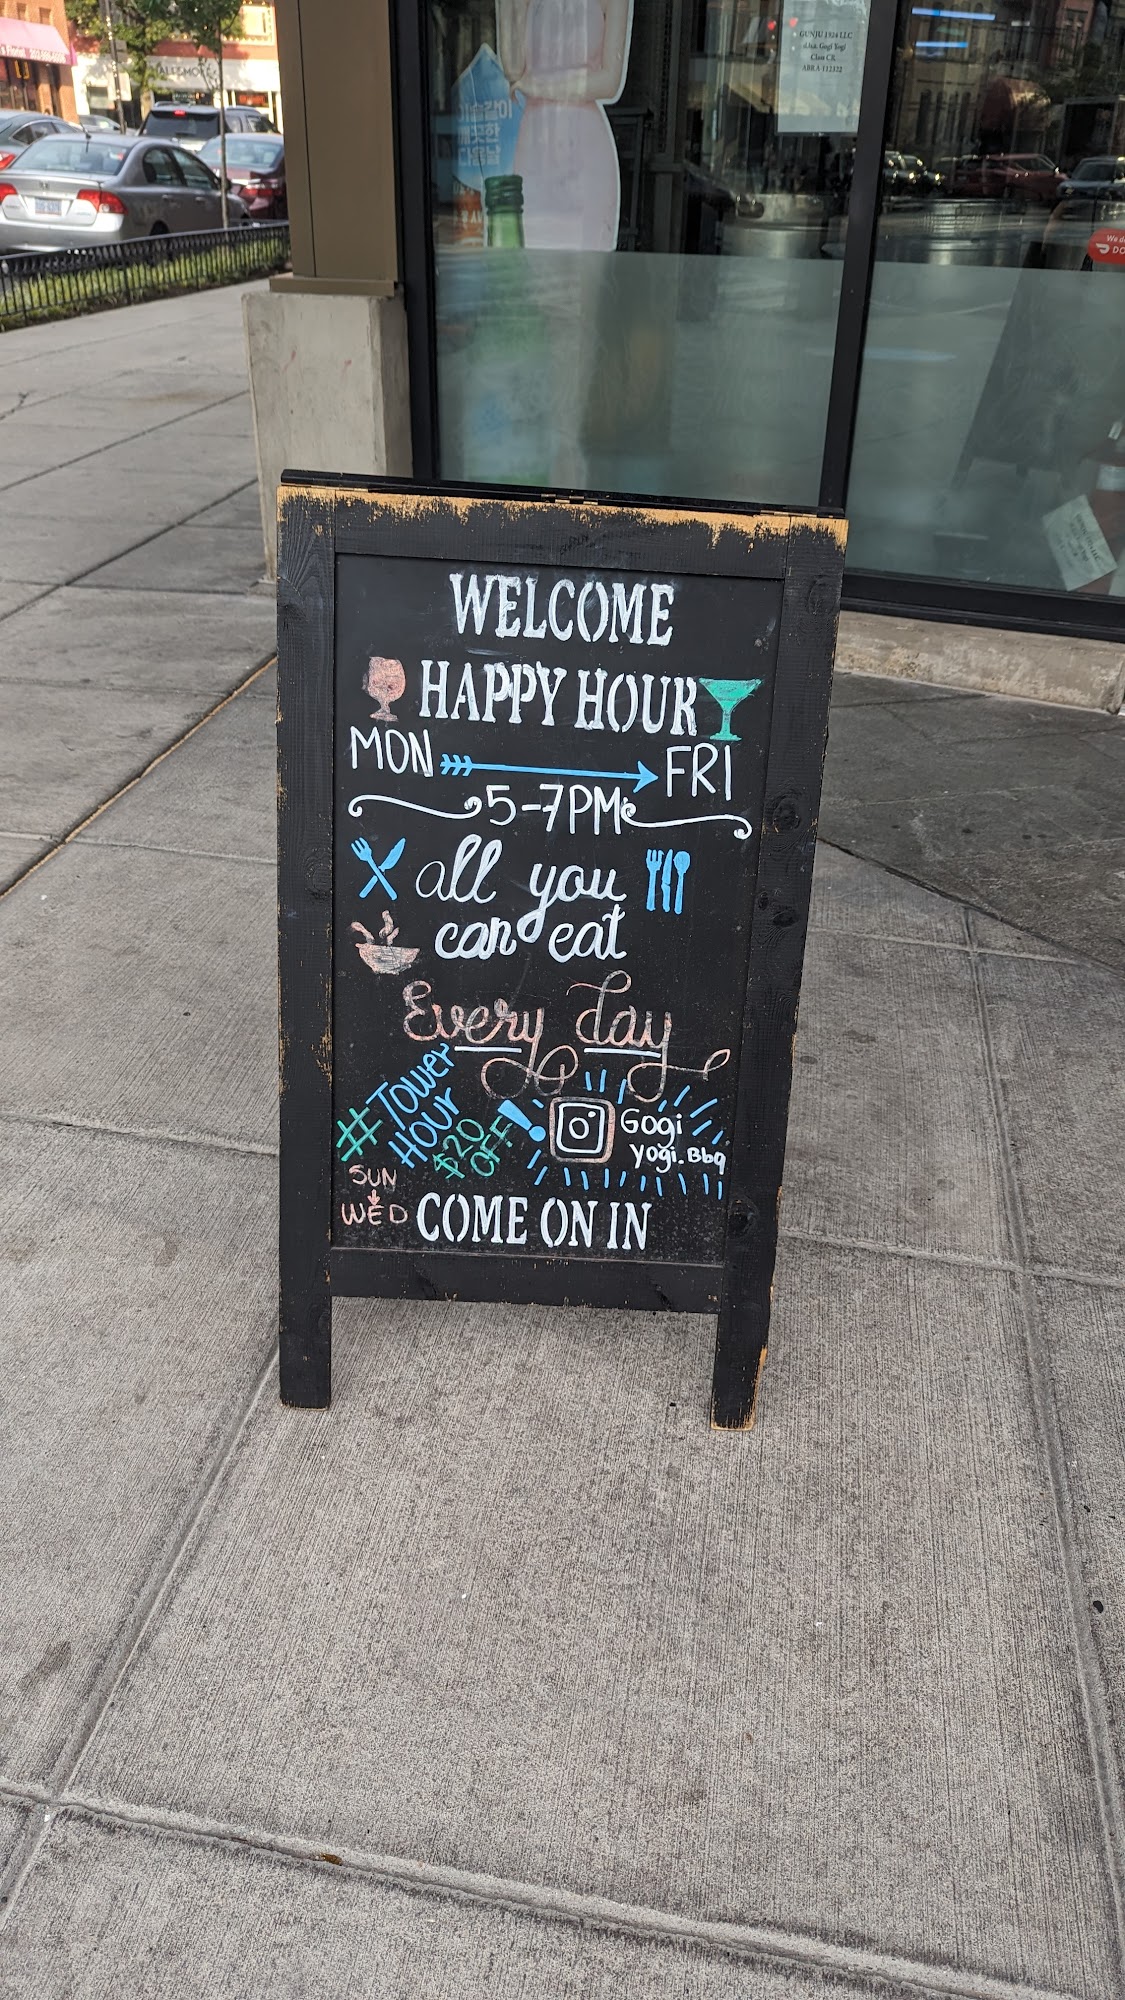 GUNJU 1924 LLC
d.b.a. Gogi Yogi
Class CR
ABRA-112122
We d
DO
WELCOME
HAPPY HOUR
MON FRI
5-7PM
all you
can eat
Every day
#TOWER
HOUR
$20
OFF!
Gogi
yogi.Bbq
SUN
WED
COME ON IN